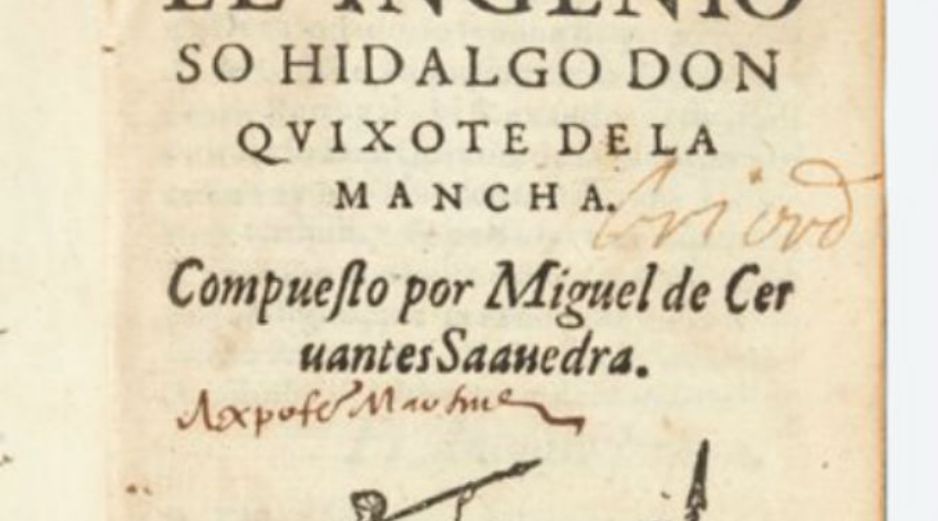 EL INGENIO
SO HIDALGO DON
QVIXOTE DE LA
MANCHA.
Compueſto por Miguel de Cer
uantes Saauedra.